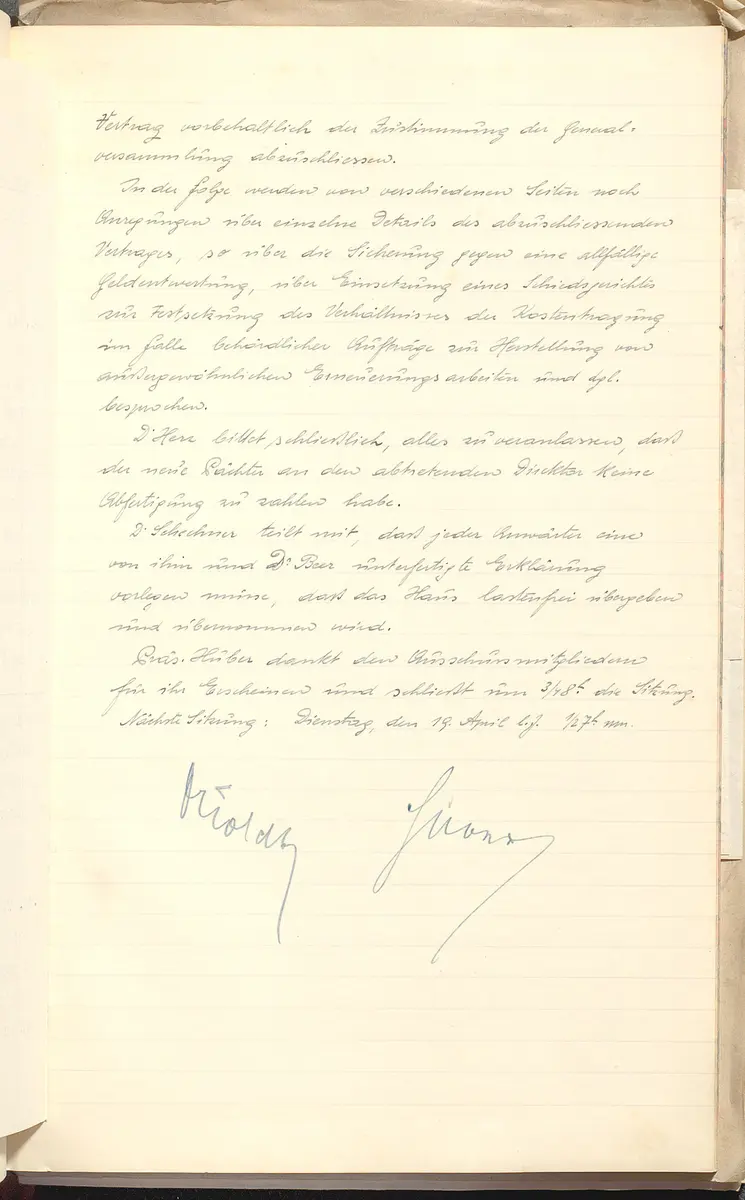 Vertrag vorbehaltlich der Zustimmung der General-
versammlung abzuschliessen.
In der Folge werden von verschiedenen Seiten noch
Anregungen über einzelne Details des abzuschliessenden
Vertrages, so über die Sicherung gegen eine allfällige
Geldentwertung, über Einsetzung eines Schiedsgerichtes
zur Festsetzung des Verhältnisses der Kostentragung
im Falle behördlicher Aufträge zur Herstellung von
außergewöhnlichen Erneuerungsarbeiten und dgl.
besprochen.
Dr Herz bittet schließlich, alles zu veranlassen, daß
der neue Pächter an den abtretenden Direktor keine
Abfertigung zu zahlen habe.
Dr Schechner teilt mit, daß jeder Anwärter eine
von ihm und Dr Beer unterfertigte Erklärung
vorlegen müsse, daß das Haus lastenfrei übergeben
und übernommen wird.
Präs. Huber dankt den Ausschussmitgliedern
für ihr Erscheinen und schließt um 3/4 8h die Sitzung.
Nächste Sitzung: Dienstag, den 19. April l.J. 1/2 7h nm.